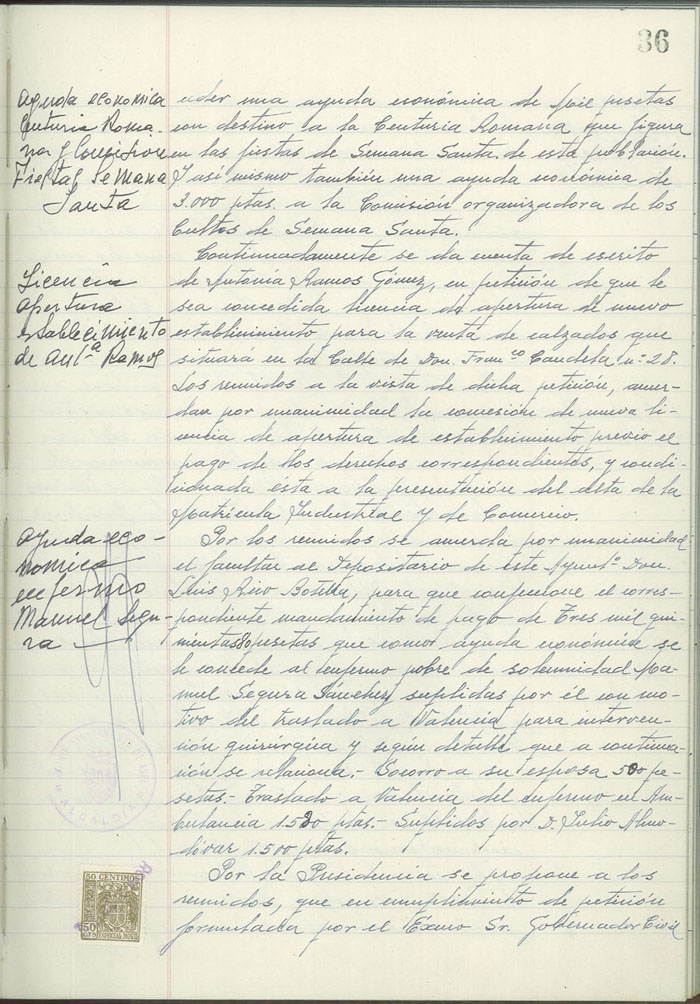 36
Ayuda economica
Centuria Roma-
na y Comision
Fiestas Semana
Santa
eder una ayuda económica de Mil pesetas
con destino a la Centuria Romana que figura
en las fiestas de Semana Santa de esta población.
Y asi mismo también una ayuda económica de
3.000 ptas. a la Comisión organizadora de los
Cultos de Semana Santa.
Licencia
apertura
establecimiento
de Antª Ramos
Continuadamente se da cuenta de escrito
de Antonia Ramos Gómez, en petición de que le
sea concedida licencia de apertura de nuevo
establecimiento para la venta de calzados que
situara en la Calle de Don Franco Candela nº 28.
Los reunidos a la vista de dicha petición, acuer-
dan por unanimidad la concesión de nueva li-
cencia de apertura de establecimiento previo el
pago de los derechos correspondientes, y condi-
cionada ésta a la presentación del alta de la
Matrícula Industrial y de Comercio.
Ayuda eco-
nomica
enfermo
Manuel Segu-
ra
Por los reunidos se acuerda por unanimidad
el facultar al Depositario de este Ayuntº Don
Luis Botella, para que confeccione el corres-
pondiente mandamiento de pago de Tres mil qui-
nientas 80 pesetas que como ayuda económica se
le concede al enfermo pobre de solemnidad Ma-
nuel Segura Sánchez y suplidas por él con mo-
tivo del traslado a Valencia para interven-
ción quirúrgica y según detalle que a continua-
ción se relaciona.- Socorro a su esposa 500 pe-
setas.- Traslado a Valencia del enfermo en Am-
bulancia 1.580 ptas.- Suplidos por D. Julio Almo-
dóvar 1.500 ptas.
Por la Presidencia se propone a los
reunidos, que en cumplimiento de petición
formulada por el Excmo Sr. Gobernador Civil
ALCALDIA
50 CENTIMOS
50
CTS
ESPECIAL MOVIL